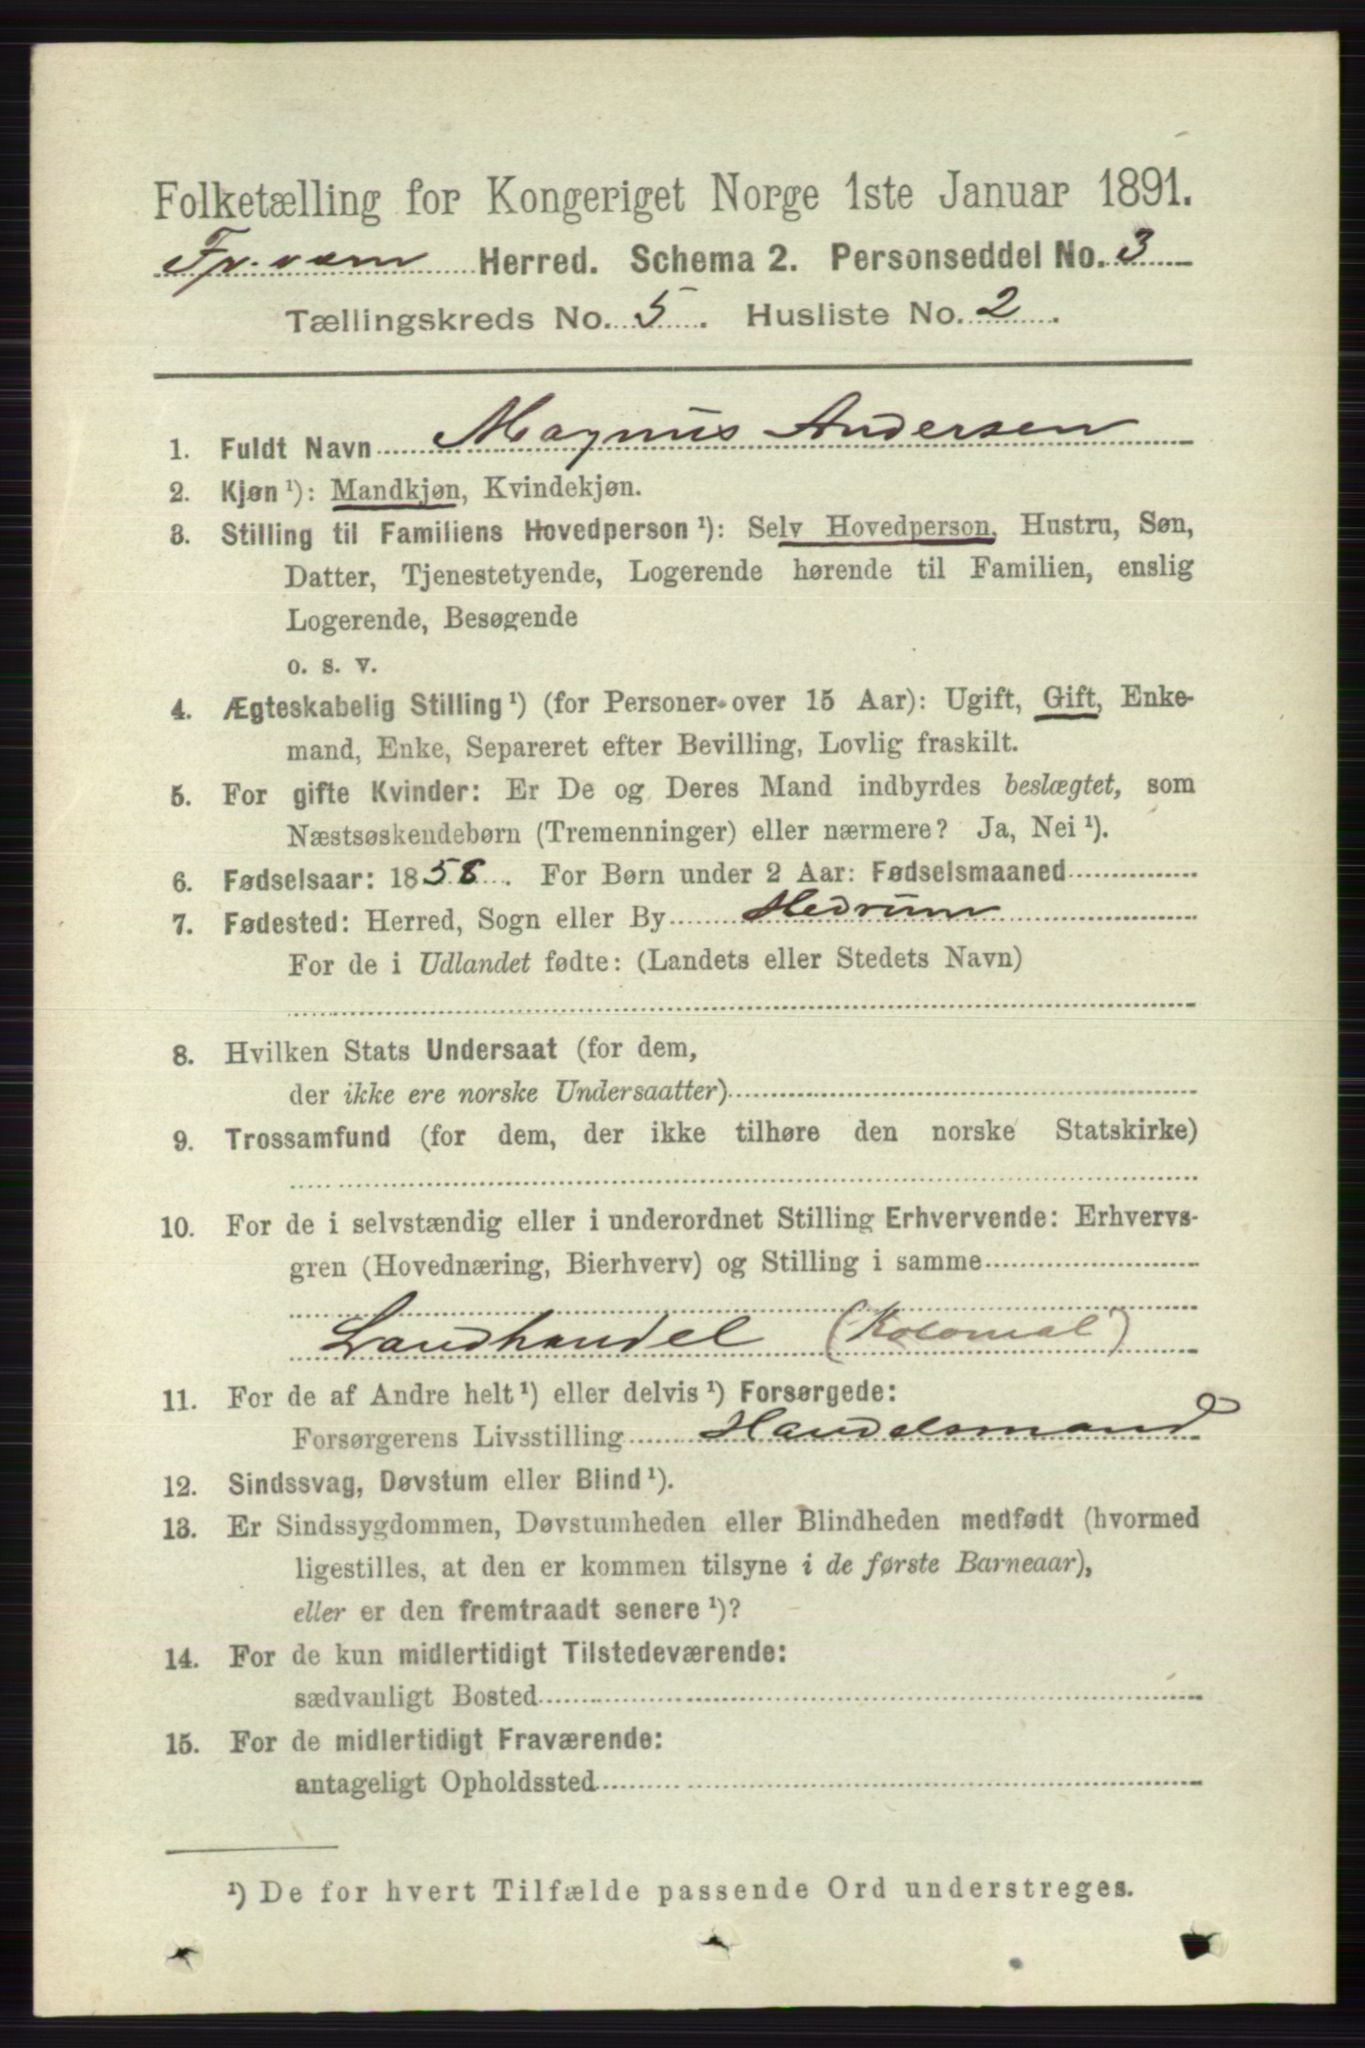 Folketælling for Kongeriget Norge 1ste Januar 1891.
Herred. Schema 2. Personseddel No. 3
Tællingskreds No. 5. Husliste No. 2.
1. Fuldt Navn Magnus Andersen
2. Kjøn ¹): Mandkjøn, Kvindekjøn.
3. Stilling til Familiens Hovedperson ¹): Selv Hovedperson, Hustru, Søn,
Datter, Tjenestetyende, Logerende hørende til Familien, enslig
Logerende, Besøgende
o. s. v.
4. Ægteskabelig Stilling ¹) (for Personer over 15 Aar): Ugift, Gift, Enke-
mand, Enke, Separeret efter Bevilling, Lovlig fraskilt.
5. For gifte Kvinder: Er De og Deres Mand indbyrdes beslægtet, som
Næstsøskendebørn (Tremenninger) eller nærmere? Ja, Nei ¹).
6. Fødselsaar: 1858. For Børn under 2 Aar: Fødselsmaaned
7. Fødested: Herred, Sogn eller By Hedrum
For de i Udlandet fødte: (Landets eller Stedets Navn)
8. Hvilken Stats Undersaat (for dem,
der ikke ere norske Undersaatter)
9. Trossamfund (for dem, der ikke tilhøre den norske Statskirke)
10. For de i selvstændig eller i underordnet Stilling Erhvervende: Erhvervs-
gren (Hovednæring, Bierhverv) og Stilling i samme
Landhandel (Kolonial)
11. For de af Andre helt ¹) eller delvis ¹) Forsørgede:
Forsørgerens Livsstilling Handelsmand
12. Sindssvag, Døvstum eller Blind ¹).
13. Er Sindssygdommen, Døvstumheden eller Blindheden medfødt (hvormed
ligestilles, at den er kommen tilsyne i de første Barneaar),
eller er den fremtraadt senere ¹)?
14. For de kun midlertidigt Tilstedeværende:
sædvanligt Bosted
15. For de midlertidigt Fraværende:
antageligt Opholdssted
¹) De for hvert Tilfælde passende Ord understreges.